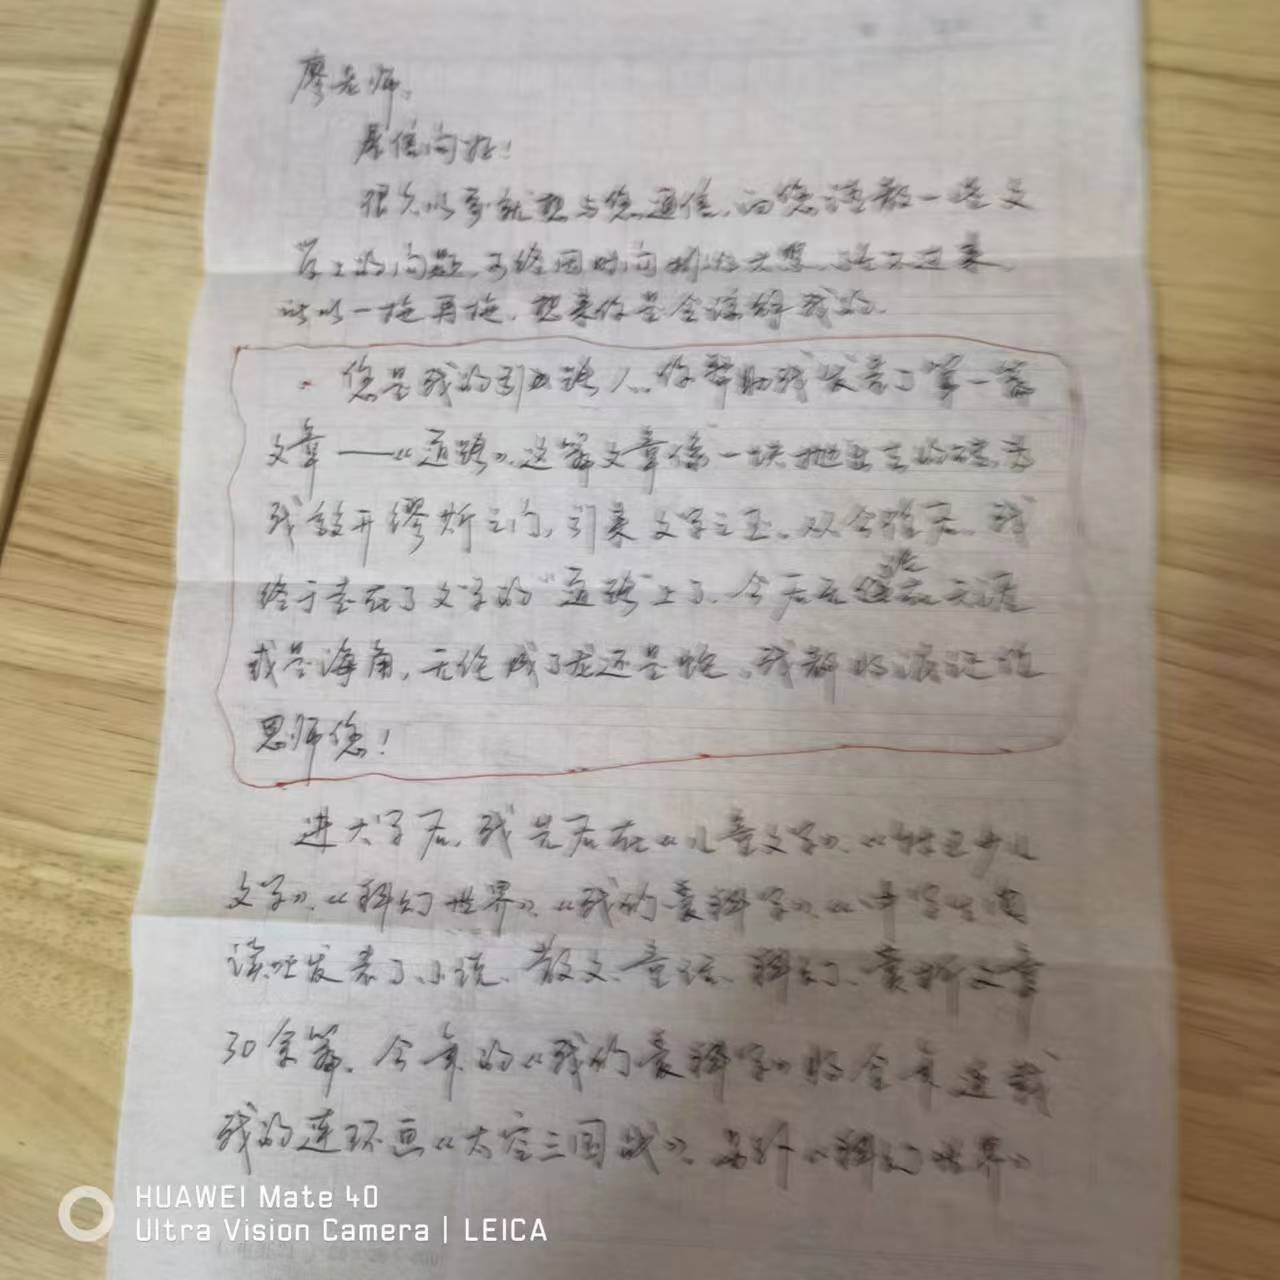 廖老师：
展信问好！
很久以前就想与您通信，向您请教一些文
学上的问题，可终因时间
所以一拖再拖，想来你是会谅解我的。
您是我的引路人，你帮助我发表了第一篇
文章——《道路》，这篇文章像一块抛出去的砖，为
我敲开缪斯之门，引来文学之玉。从今往后，我
终于走在了文学的“道路”上了，今后无论在天涯
或是海角，无论成了龙还是蛇，我都将谈记住
恩师您！
进大学后，我先后在《儿童文学》、
文学》、《科幻世界》、《我的爱科学》、《中学生阅
读》发表了小说、散文、童话、科幻、赏析文章
30余篇。今年的《我们爱科学》将全年连载
我的连环画《太空三国战》，另外《科幻世界》
HUAWEI Mate 40
Ultra Vision Camera | LEICA